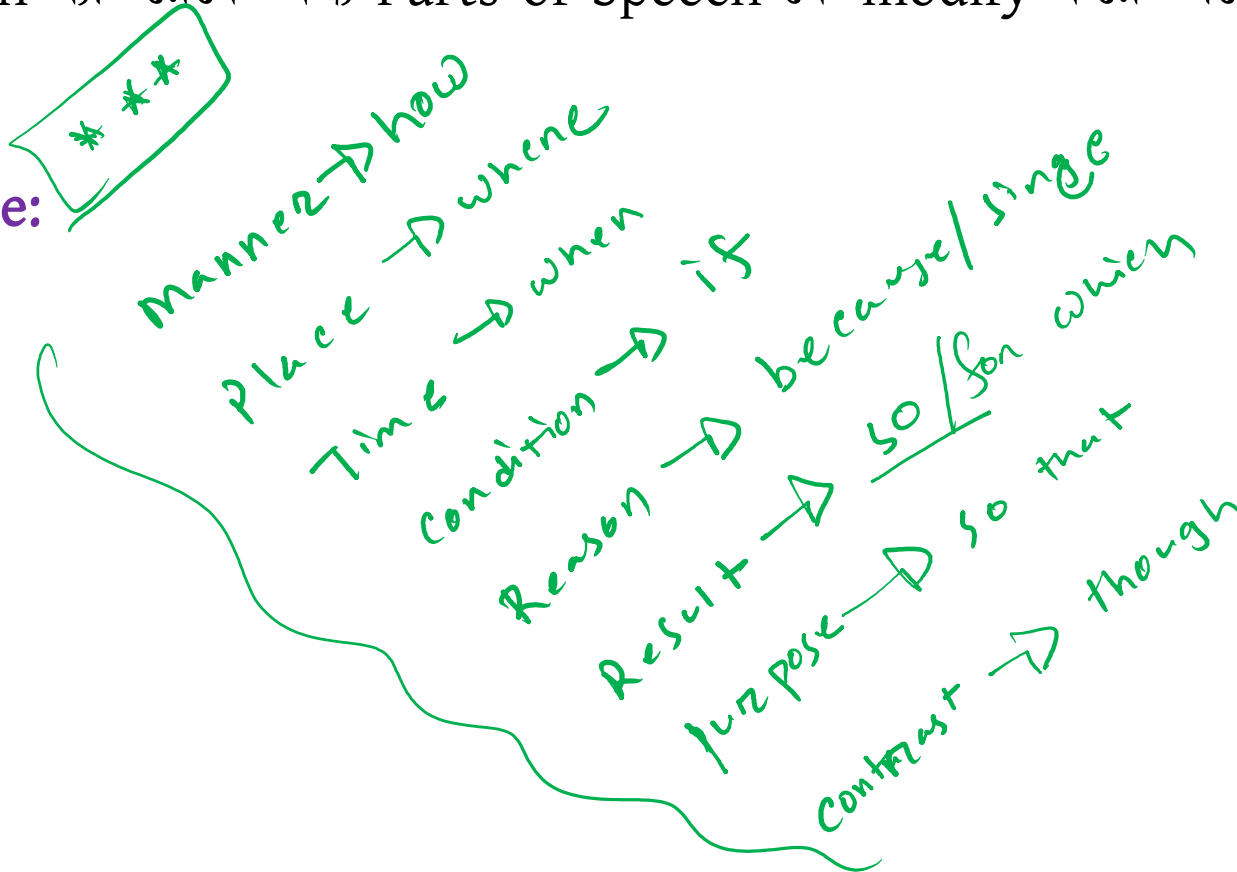 Parts of Speech modify
* * *
e:
Manner → how
Place → where
Time → when
Condition → if
Reason → because/ since
Result → so/for which
purpose → so that
Contrast → though